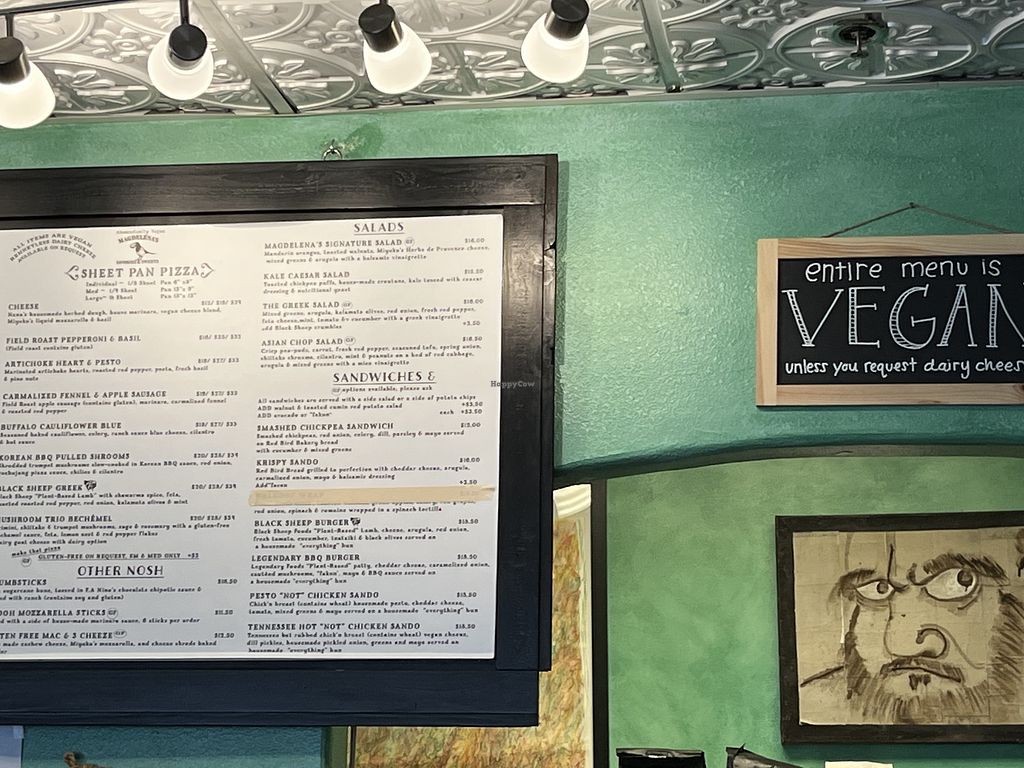 ALL ITEMS ARE VEGAN
RENNETLESS DAIRY CHEESE
AVAILABLE ON REQUEST
Abundantly Vegan
MAGDELENA'S
SHEET PAN PIZZA
Individual ~ 1/8 Sheet Pan 6" x9"
Med ~ 1/4 Sheet Pan 9" x 13"
Large~ ½ Sheet Pan 13" x 18"
CHEESE
Nana's housemade herbed dough, house marinara, vegan cheese blend,
Miyoko's liquid mozzarella & basil
FIELD ROAST PEPPERONI & BASIL
(Field roast contains gluten)
ARTICHOKE HEART & PESTO
Marinated artichoke hearts, roasted red pepper, pesto, fresh basil
& pine nuts
CARMALIZED FENNEL & APPLE SAUSAGE
Field Roast apple sausage (contains gluten), marinara, carmalized fennel
& roasted red pepper
BUFFALO CAULIFLOWER BLUE
Seasoned baked cauliflower, celery, ranch sauce blue cheese, cilantro
& hot sauce
KOREAN BBQ PULLED SHROOMS
Shredded trumpet mushrooms slow-cooked in Korean BBQ sauce, red onion,
gochujang pizza sauce, chilies & cilantro
BLACK SHEEP GREEK
Black Sheep "Plant-Based Lamb" with shawarma spice, feta,
roasted red pepper, red onion, kalamata olives & mint
MUSHROOM TRIO BECHÉMEL
shiitake & trumpet mushrooms, sage & rosemary with a gluten-free
bechamel sauce, feta, lemon zest & red pepper flakes
goat cheese with dairy option
make that pizza
GLUTEN-FREE ON REQUEST, SM & MED ONLY +$3
OTHER NOSH
UMBSTICKS
sugarcane bone, tossed in P.A Nina's chocolate chipotle sauce &
with ranch (contains soy and gluten)
OOH MOZZARELLA STICKS GF $11.50
with a side of house-made marinara sauce, 6 sticks per order
TEN FREE MAC & 3 CHEEZE GF $12.50
made cashew cheese, Miyoko's mozzarella, and cheese shreds baked
SALADS
MAGDELENA'S SIGNATURE SALAD GF $16.00
Mandarin oranges, toasted walnuts, Miyoko's Herbs de Provence cheese,
mixed greens & arugula with a balsamic vinaigrette
KALE CAESAR SALAD
Toasted chickpea puffs, house-made croutons, kale tossed with caesar
dressing & nutritional yeast
THE GREEK SALAD GF $16.00
Mixed greens, arugula, kalamata olives, red onion, fresh red pepper,
feta cheese,mint, tomato & cucumber with a greek vinaigrette
add Black Sheep crumbles +3.50
ASIAN CHOP SALAD GF $16.50
Crisp pea-pods, carrot, fresh red pepper, seasoned tofu, spring onion,
shiitake shrooms, cilantro, mint & peanuts on a bed of red cabbage,
arugula & mixed greens with a miso vinaigrette
SANDWICHES &
GF options available, please ask
All sandwiches are served with a side salad or a side of potato chips
ADD walnut & toasted cumin red potato salad +$3.50
ADD avocado or "fakon" each +$2.50
SMASHED CHICKPEA SANDWICH $15.00
Smashed chickpeas, red onion, celery, dill, parsley & mayo served
on Red Bird Bakery bread
with cucumber & mixed greens
KRISPY SANDO $16.00
Red Bird Bread grilled to perfection with cheddar cheese, arugula,
carmalized onion, mayo & balsamic dressing
Add"facon +2.50
red onion, spinach & romaine wrapped in a spinach tortilla
BLACK SHEEP BURGER $18.50
Black Sheep Foods "Plant-Based" Lamb, cheese, arugula, red onion,
fresh tomato, cucumber, tzatziki & black olives served on
a housemade "everything" bun
LEGENDARY BBQ BURGER $18.50
Legendary Foods "Plant-Based" patty, cheddar cheese, caramelized onion,
sautéed mushrooms, "fakon", mayo & BBQ sauce served on
a housemade "everything" bun
PESTO "NOT" CHICKEN SANDO
Chick'n breast (contains wheat) housemade pesto, cheddar cheese,
tomato, mixed greens & mayo served on a housemade "everything" bun
TENNESSEE HOT "NOT" CHICKEN SANDO
Tennessee hot rubbed chick'n breast (contains wheat) vegan cheese,
dill pickles, housemade pickled onion, greens and mayo served on a
housemade "everything" bun
HappyCow
entire menu is
VEGAN
unless you request dairy chees